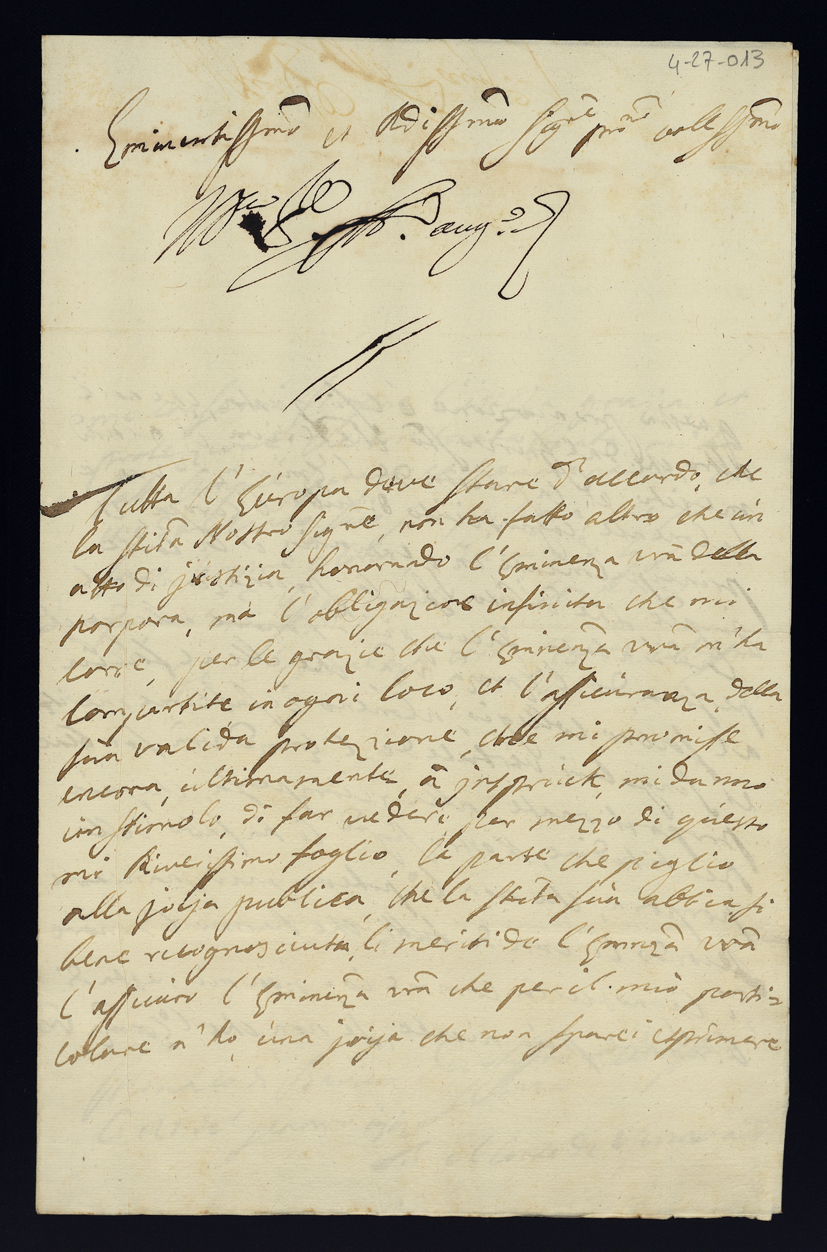 4-27-013
Eminentissimo et Rdissimo Sigre prone coll ssmo
augo
Tutta l'Europa deve stare d'accordo, che
la Stità Nostro Signe, non ha fatto altro che un
atto di justizia, honorando l'Eminenza vrã della
porpora, ma l'obligazione infinita che mi
corre, per le grazie che l'Eminenza vrã m'ha
compartite in ogni loco, et l'assicuranza della
sua valida protezione, che mi promisse
encora, ultimamente, a jnspruck, mi danno
un stimolo, di far vedere per mezzo di questo
mio Riverissimo foglio, la parte che piglio
alla joija publica, che la Stità sua abbia si
bene recognosciuta, li meriti de l'Eminzã vrã
l'assicuro l'Eminenzã vrã che per il mio parti=
colare n'ho, una joija che non saprei esprimere